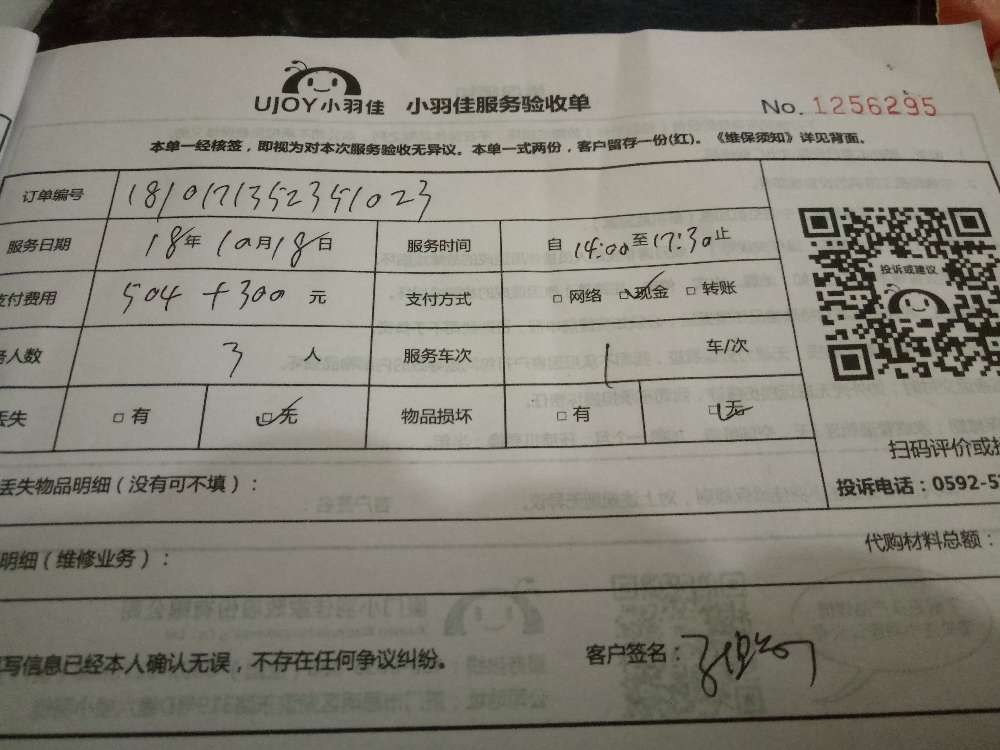 UJOY小羽佳 小羽佳服务验收单 No. 1256295
本单一经核签，即视为对本次服务验收无异议。本单一式两份，客户留存一份(红)。《维保须知》详见背面。
订单编号 1810171352351023
服务日期 18年10月18日 服务时间 自14:00至17:30止
支付费用 504+300元 支付方式 □网络 ☑现金 □转账
务人数 3人 服务车次 1 车/次
丢失 □有 ☑无 物品损坏 □有 ☑无
投诉或建议
扫码评价或投
投诉电话：0592-5
丢失物品明细（没有可不填）：
明细（维修业务）： 代购材料总额：
填写信息已经本人确认无误，不存在任何争议纠纷。 客户签名：